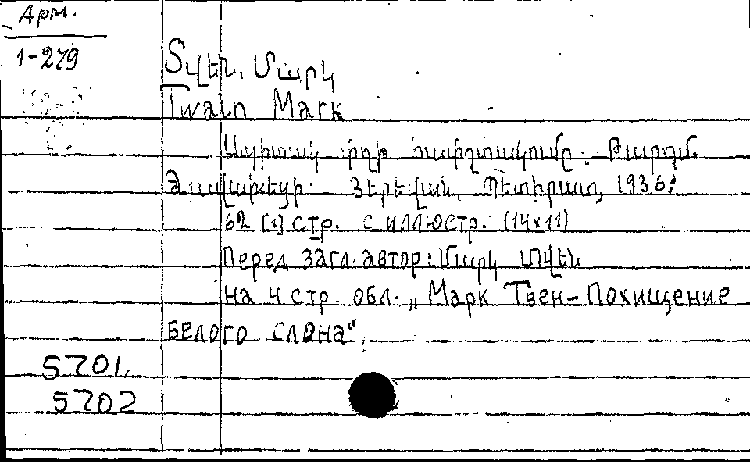 Арм.
1-279
Տվեն, Մարկ
Twain Mark
Սպիտակ փղի հափշտակումը. Թարգմ.
Յերեվան, Պետհրատ, 1936:
62 [1] стр. с иллюстр. (14x11)
Перед загл. автор: Մարկ Տվեն
на 4 стр. обл. „Марк Твен-Похищение
белого слона".
5701,
5702